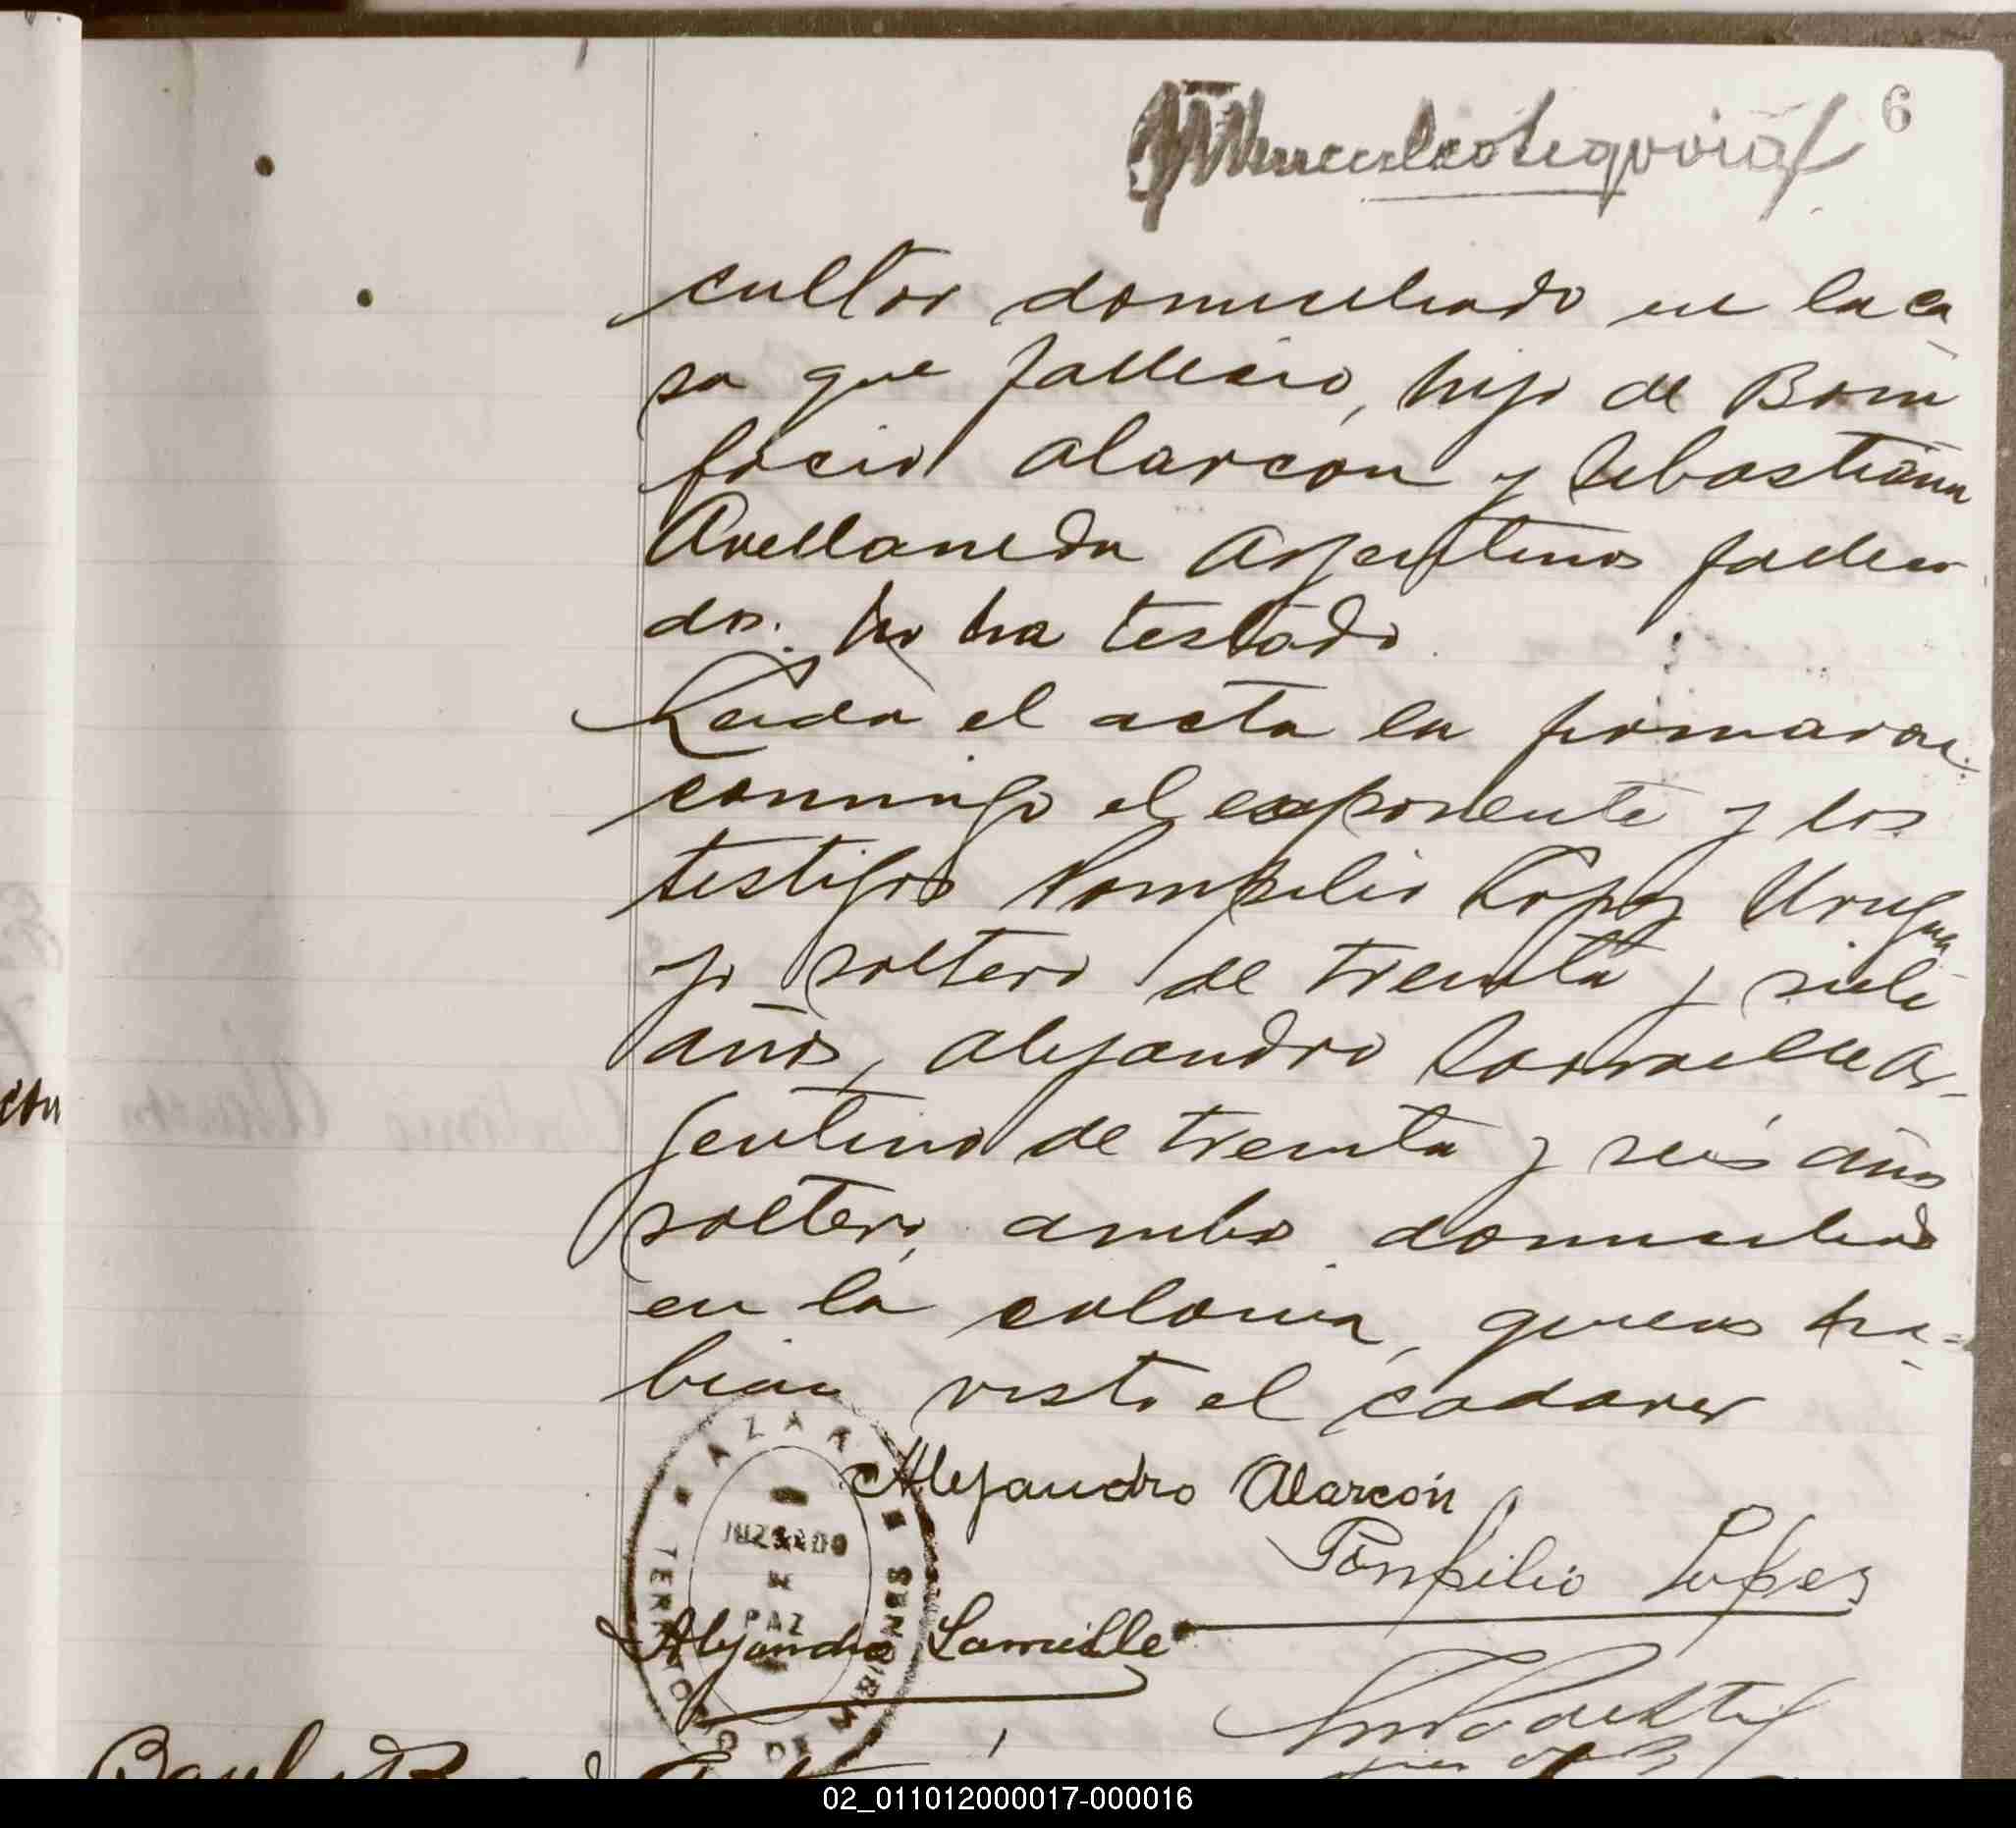 6
cultor domiciliado en la ca
sa que fallecio, hijo de Boni
facio Alarcon y Sebastiana
Avellaneda Argentinos falleci
dos. No ha testado.
Leida el acta la firmaron
conmigo el exponente y los
testigos Pompilio Lopez Urugua
yo soltero de treinta y siete
años, Alejandro Lamielle Ar-
gentino de treinta y seis años
soltero, ambos domiciliados
en la colonia, quienes ha-
bian visto el cadaver
Alejandro Alarcón
Pompilio Lopez
Alejandro Lamielle
AZARA
JUZGADO
DE
PAZ
con
02_011012000017-000016